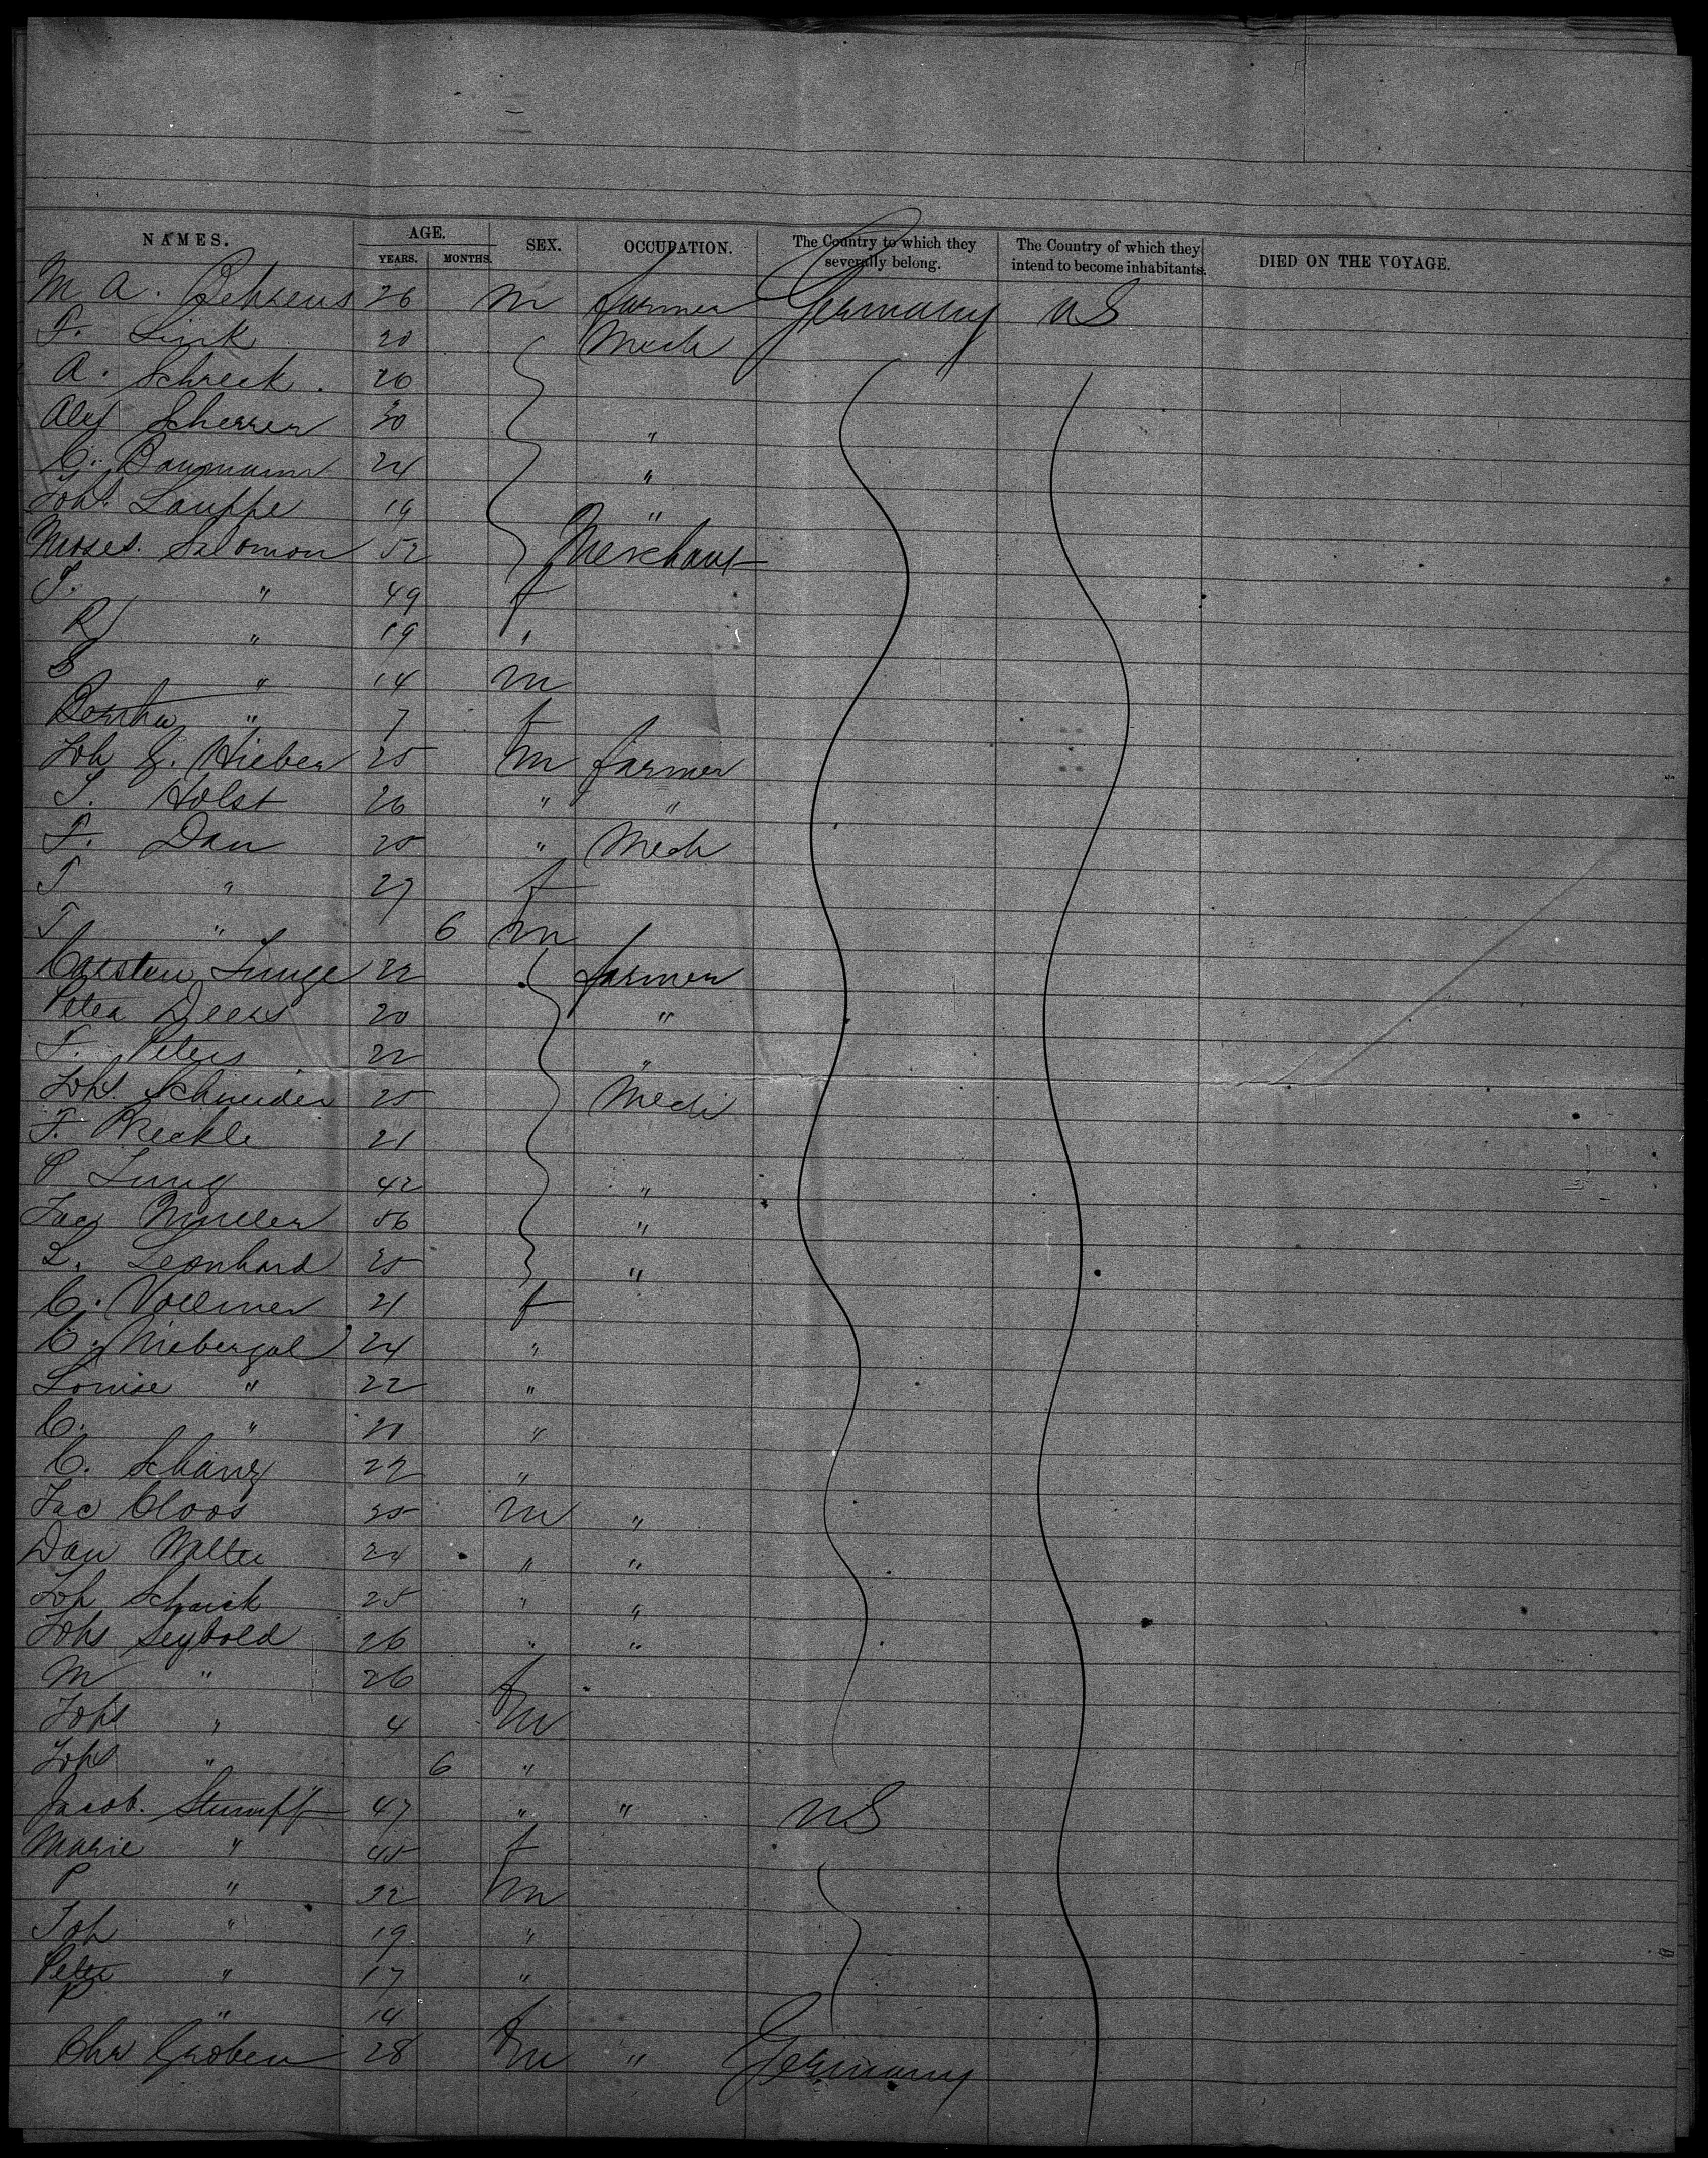 NAMES. AGE. SEX. OCCUPATION. The Country to which they severally belong. The Country of which they intend to become inhabitants. DIED ON THE VOYAGE.
YEARS. MONTHS.
M A. Behrens 26 m farmer Germany US
F. Link 20 Mech
A. Schreck. 26
Alex Scherrer 30 "
C. Baumann 24 "
Johs. Lauppe 19 "
Moses. Salomon 52 Merchant
T. " 49 f
R " 19 "
S " 14 m
Bertha " 7 f
Joh G. Hieber 25 m farmer
T. Holst 26 " "
F. Dau 25 " Mech
T " 27 f
T " 6 m
Carsten Junge 22 farmer
Peter Deers 20 "
F. Peters 22 "
Johs. Schneider 25 Mech
F. 21
P Jung 42 "
Jac Mueller 56 "
L. Leonhard 25 "
C. Vollmer 21 f
C. Niebergal 24 "
Louise " 22 "
C. " 20 "
C. Schanz 22 "
Jac Cloos 25 m "
Dan 24 " "
Joh 25 " "
Johs Seybold 26 " "
M " 26 f
Johs " 4 m
Johs " 6 "
Jacob. Stumpff 47 " " US
Marie " 45 f
P " 22 m
Joh " 19 "
Peter " 17 "
P " 14 f
Chr Groben 28 m " Germany